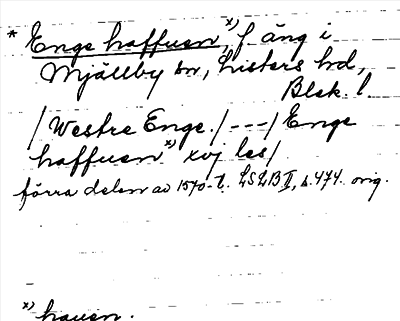 * Enge haffuen x), f äng i
Mjällby sn, Listers hd,
Blek. l.
/Westre Enge./---/Enge
haffuen x) xvj les/
förra delen av 1570-t. LSLB II, s. 474. orig.
x) hauen.